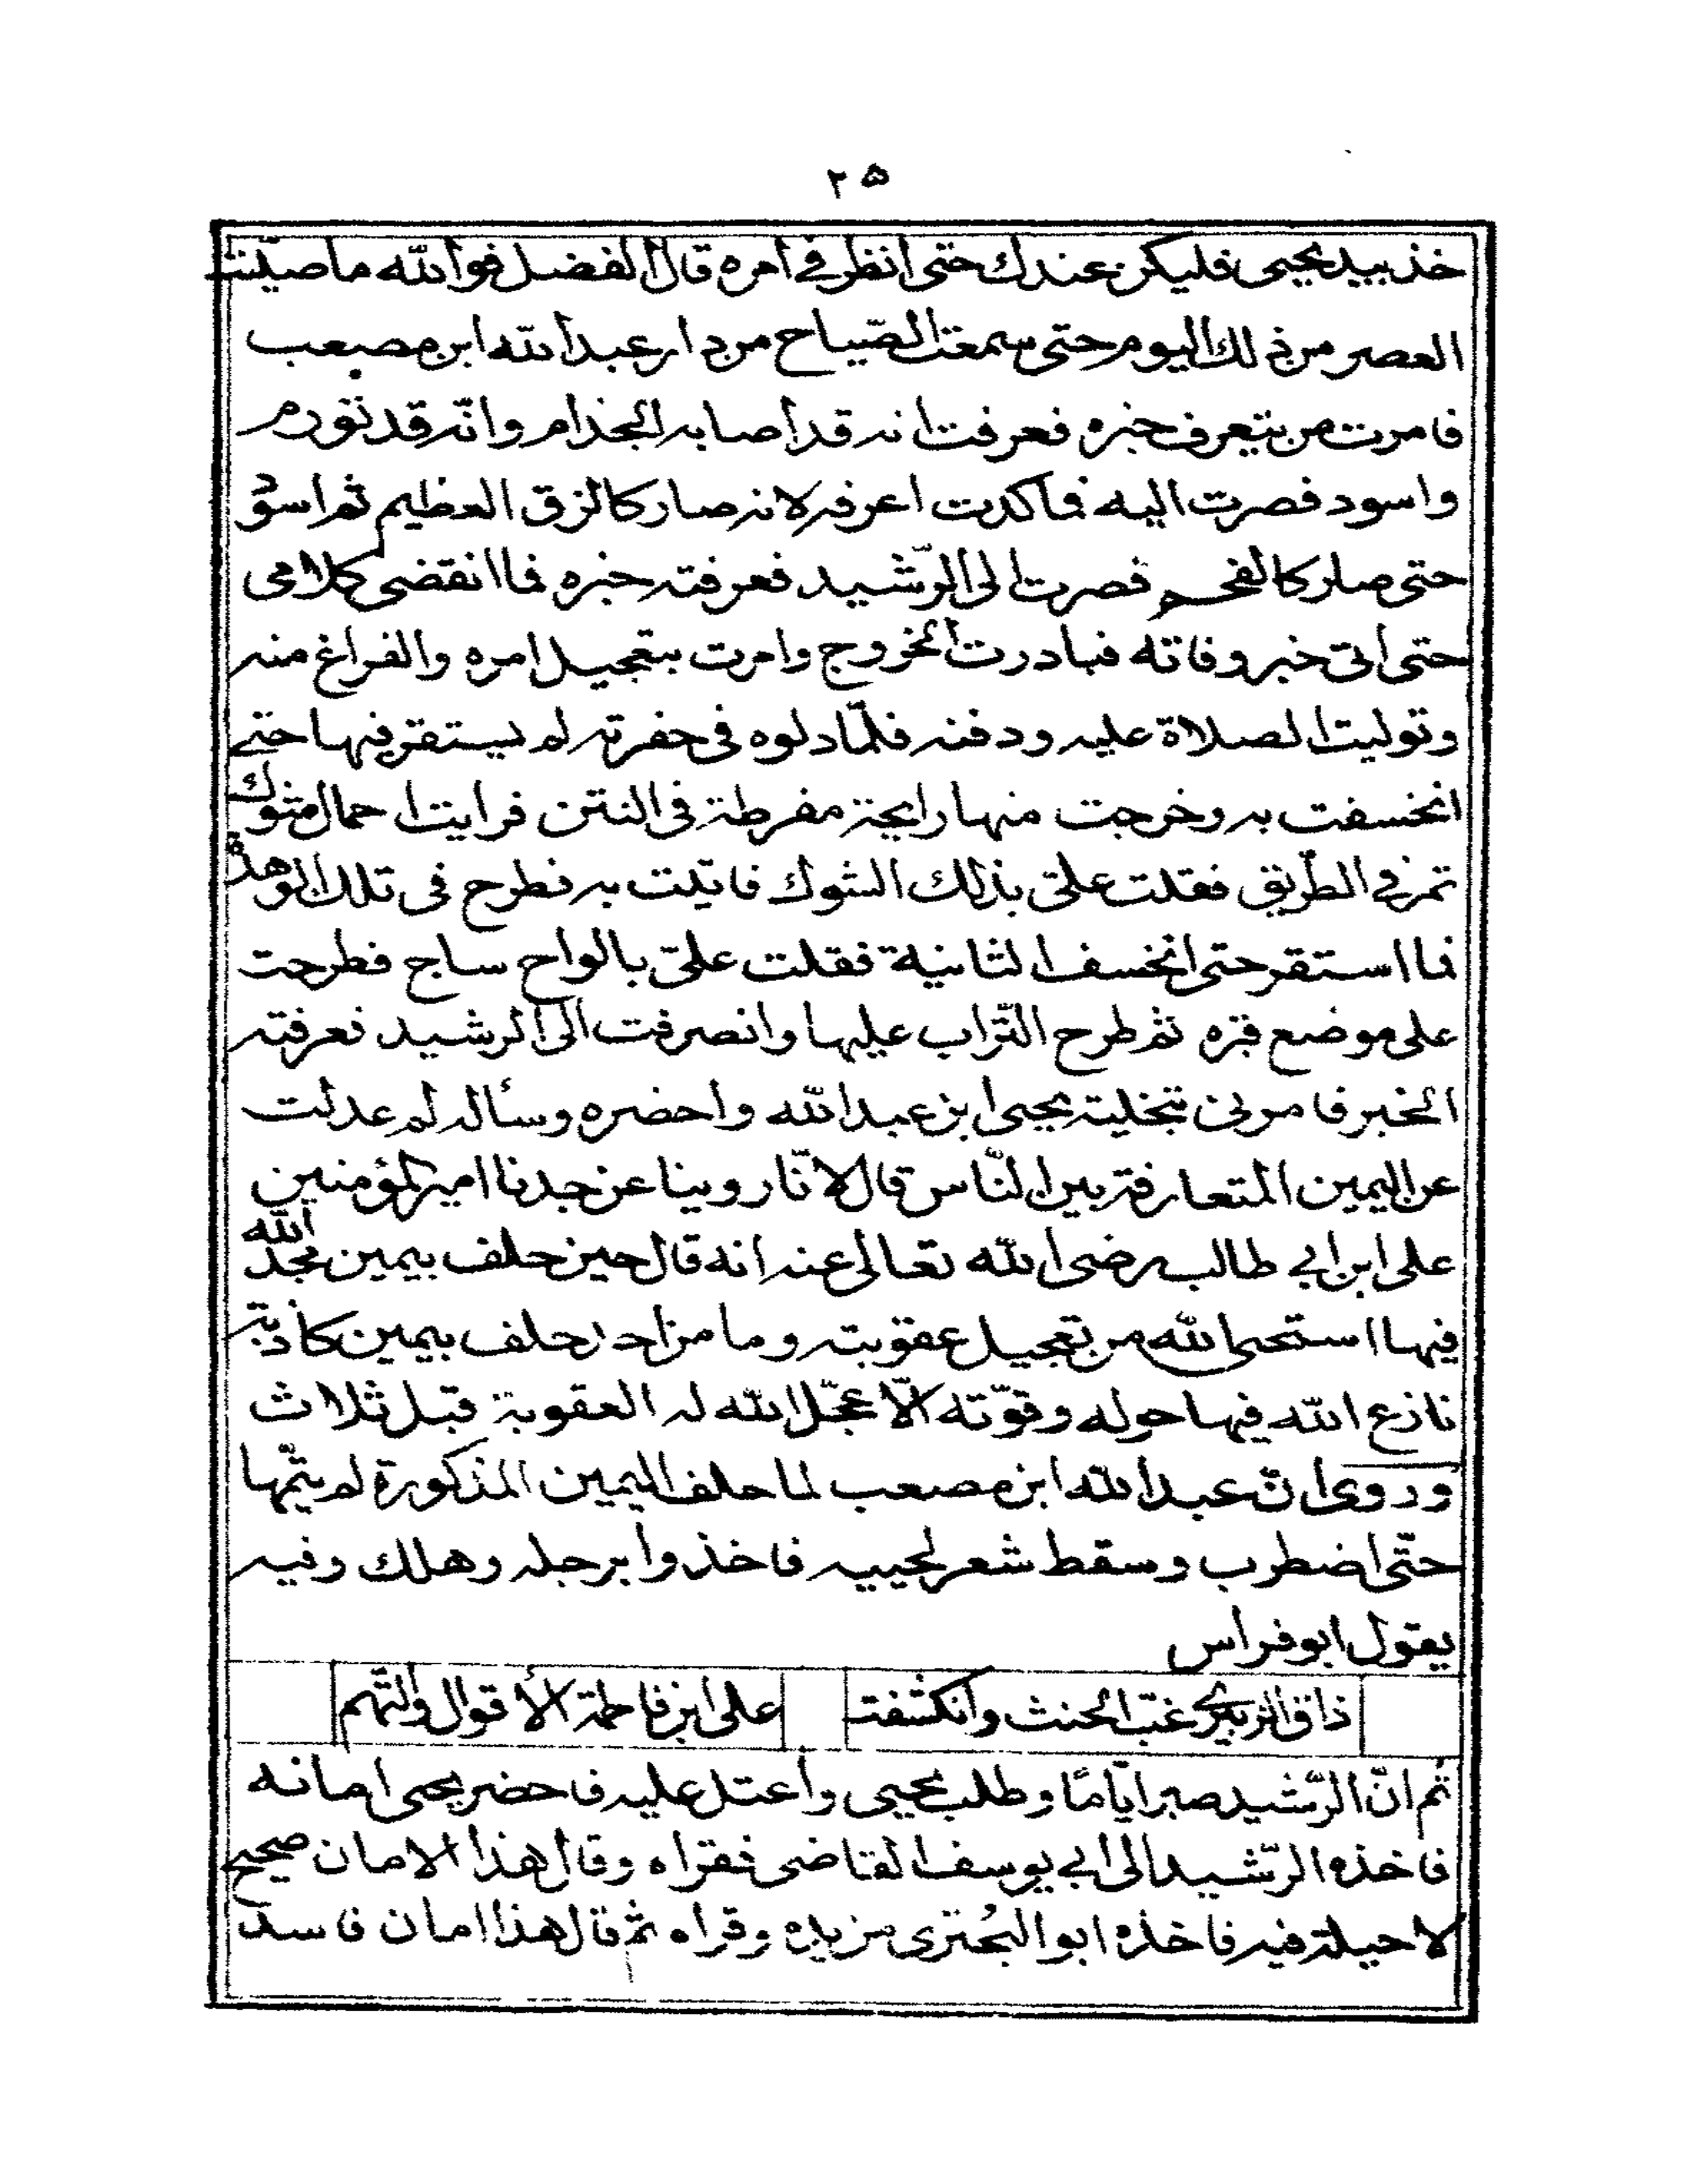 ٢٥
خذ بيد يحيى فليكن عندك حتى انظر في امره قال الفضل فوالله ما صليت
العصر من ذلك اليوم حتى سمعت الصّياح من دار عبد الله ابن مصعب
فامرت من يتعرف خبره فعرفت انه قد اصابه الجذام وانّه قد تورم
واسود فصرت اليه فما كدت اعرفه لانه صار كالزق العظيم ثم اسودّ
حتى صار كالفحم فصرت الى الرّشيد فعرفته خبره فما انقضى كلامى
حتى اتى خبر وفاته فبادرت الخروج وامرت بتعجيل امره والفراغ منه
وتوليت الصلاة عليه ودفنه فلمّا دلوه فى حفرته لم يستقر فيها حتى
انخسفت به وخرجت منها رايحة مفرطة فى النتن فرايت احمال شوك
تمر في الطّريق فقلت علىّ بذلك الشوك فاتيت به فطرح فى تلك الوهدة
فما استقر حتى انخسف الثانية فقلت علىّ بالواح ساج فطرحت
على موضع قبره ثم طرح التّراب عليها وانصرفت الى الرشيد فعرفته
الخبر فامرنى بتخلية يحيى ابن عبد الله واحضره وسأله لم عدلت
عن اليمين المتعارفة بين النّاس قال لانّا روينا عن جدنا امير المؤمنين
على ابن ابي طالب رضى الله تعالى عنه انه قال من حلف بيمين مجد الله
فيها استحى الله من تعجيل عقوبته وما من احد حلف بيمين كاذبة
نازع الله فيها حوله وقوّته الّا عجّل الله له العقوبة قبل ثلاث
وروى انّ عبد الله ابن مصعب لما حلف اليمين المذكورة لم يتمّها
حتّى اضطرب وسقط شعر لحييه فاخذوا برجله وهلك وفيه
يقول ابو فراس
ذاق الزبيريّ غبّ الحنث وانكشفت على ابن فاطمة الأقوال والتّهم
ثم انّ الرّشيد صبر ايّامًا وطلب يحيى واعتل عليه فاحضر يحيى امانه
فاخذه الرّشيد الى ابي يوسف القاضى فقراه وقال هذا الامان صحيح
لا حيلة فيه فاخذه ابو البُحترى من يده وقراه ثم قال هذا امان فاسد